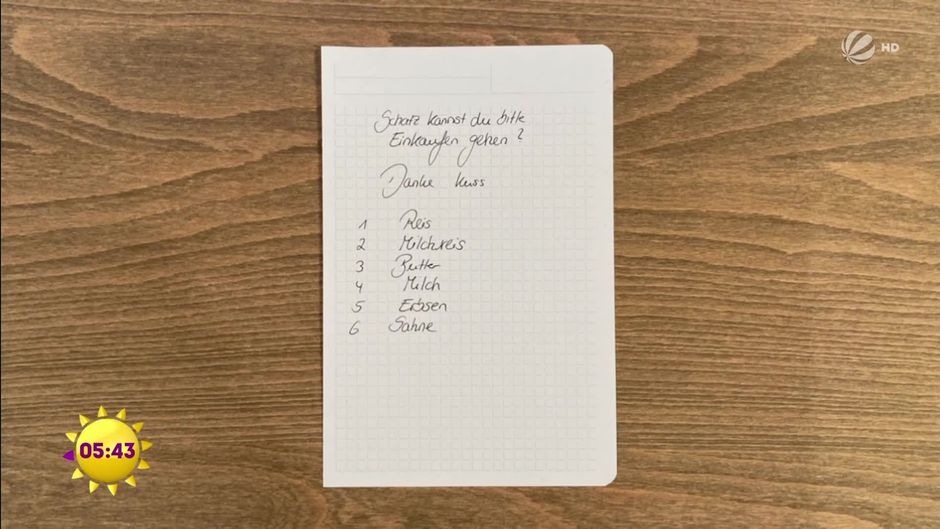 HD
Schatz kannst du bitte
Einkaufen gehen?
Danke Kuss
1 Reis
2 Milchreis
3 Butter
4 Milch
5 Erbsen
6 Sahne
05:43